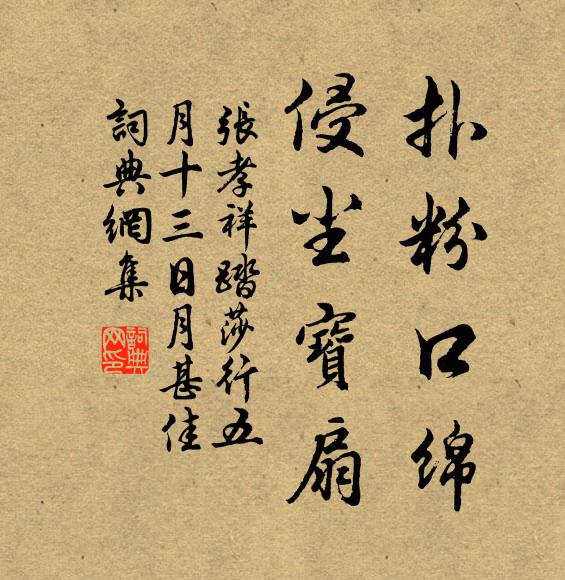 扑粉口綿
侵尘寶扇
張孝祥踏莎行五
月十三日月甚佳
詞典網集
詞典網印